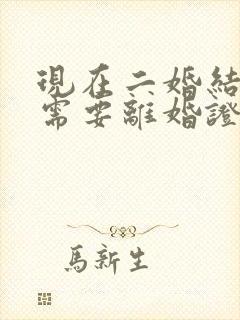 現在二婚結
需要離婚證
馬新生